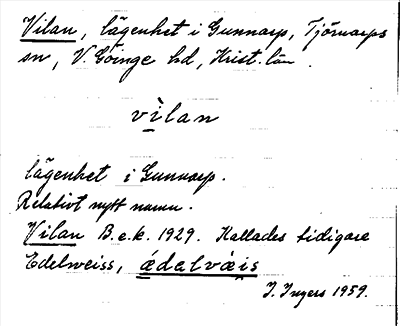 Vilan, lägenhet i Gunnarp, Tjörnarps
sn, V. Göinge hd, Krist. län.
vìlan
lägenhet i Gunnarp.
Relativt nytt namn.
Vilan B.e.k. 1929. Kallades tidigare
Edelweiss, ǽdalvæis
I. Ingers 1959.